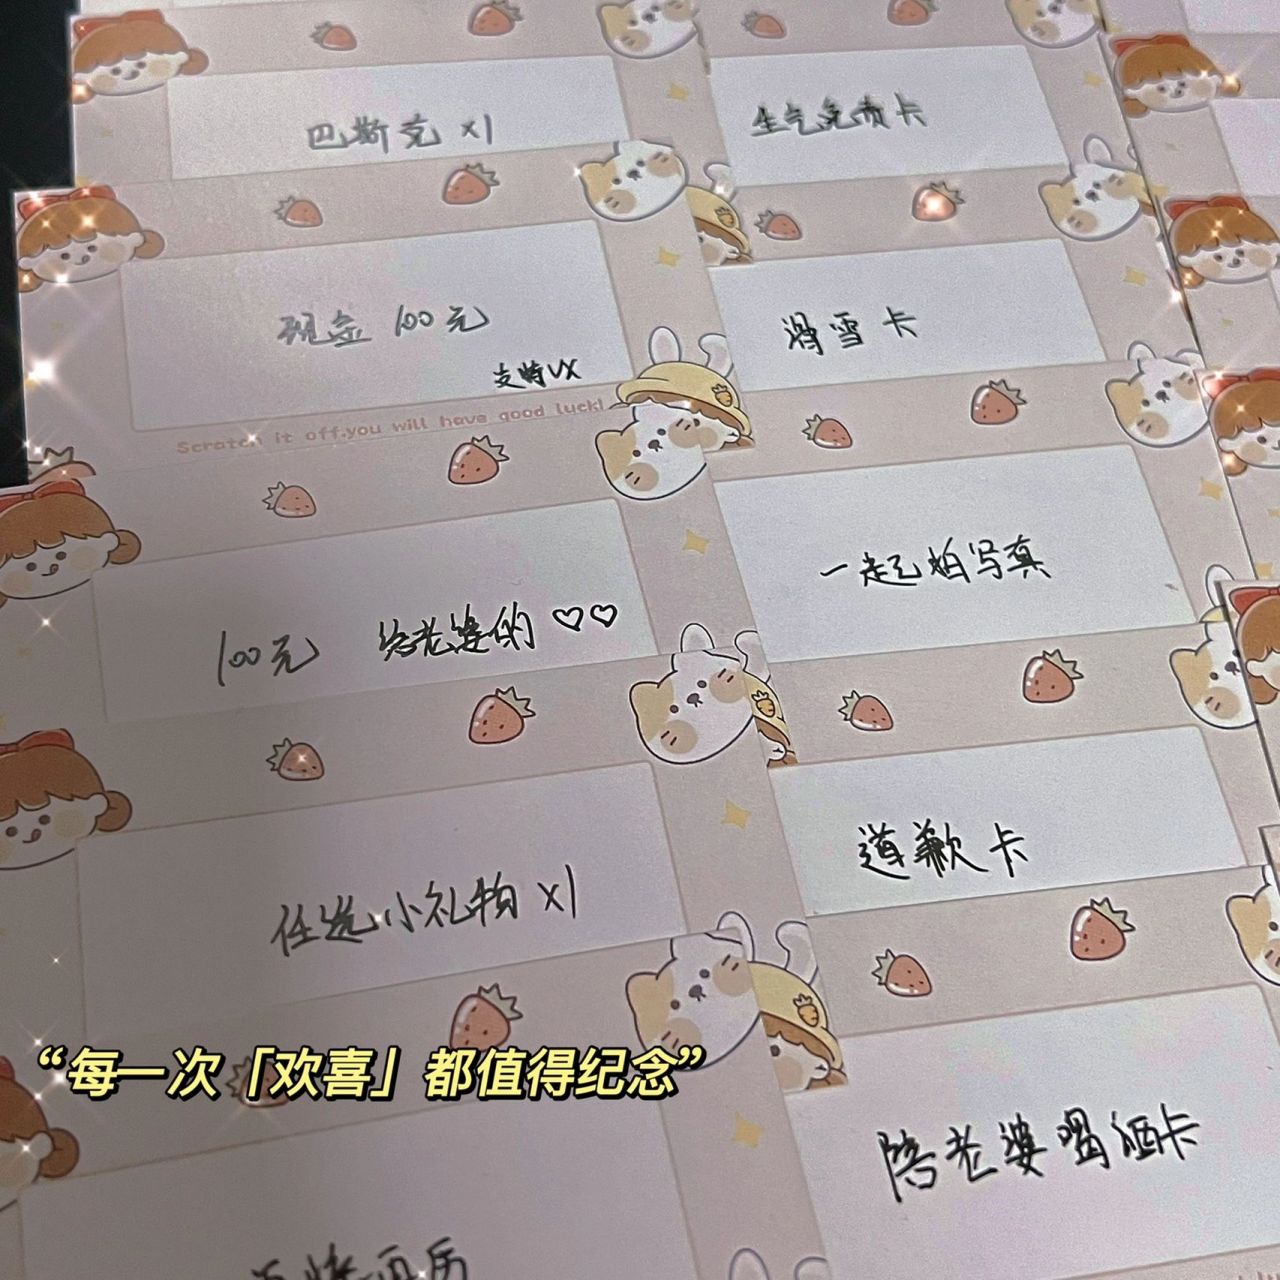 巴斯克 x1
现金 100元
支持VX
Scratch it off.you will have good luck!
100元 给老婆的 ♡♡
任选小礼物 x1
生气免责卡
滑雪卡
一起拍写真
道歉卡
陪老婆喝酒卡
“每一次「欢喜」都值得纪念”